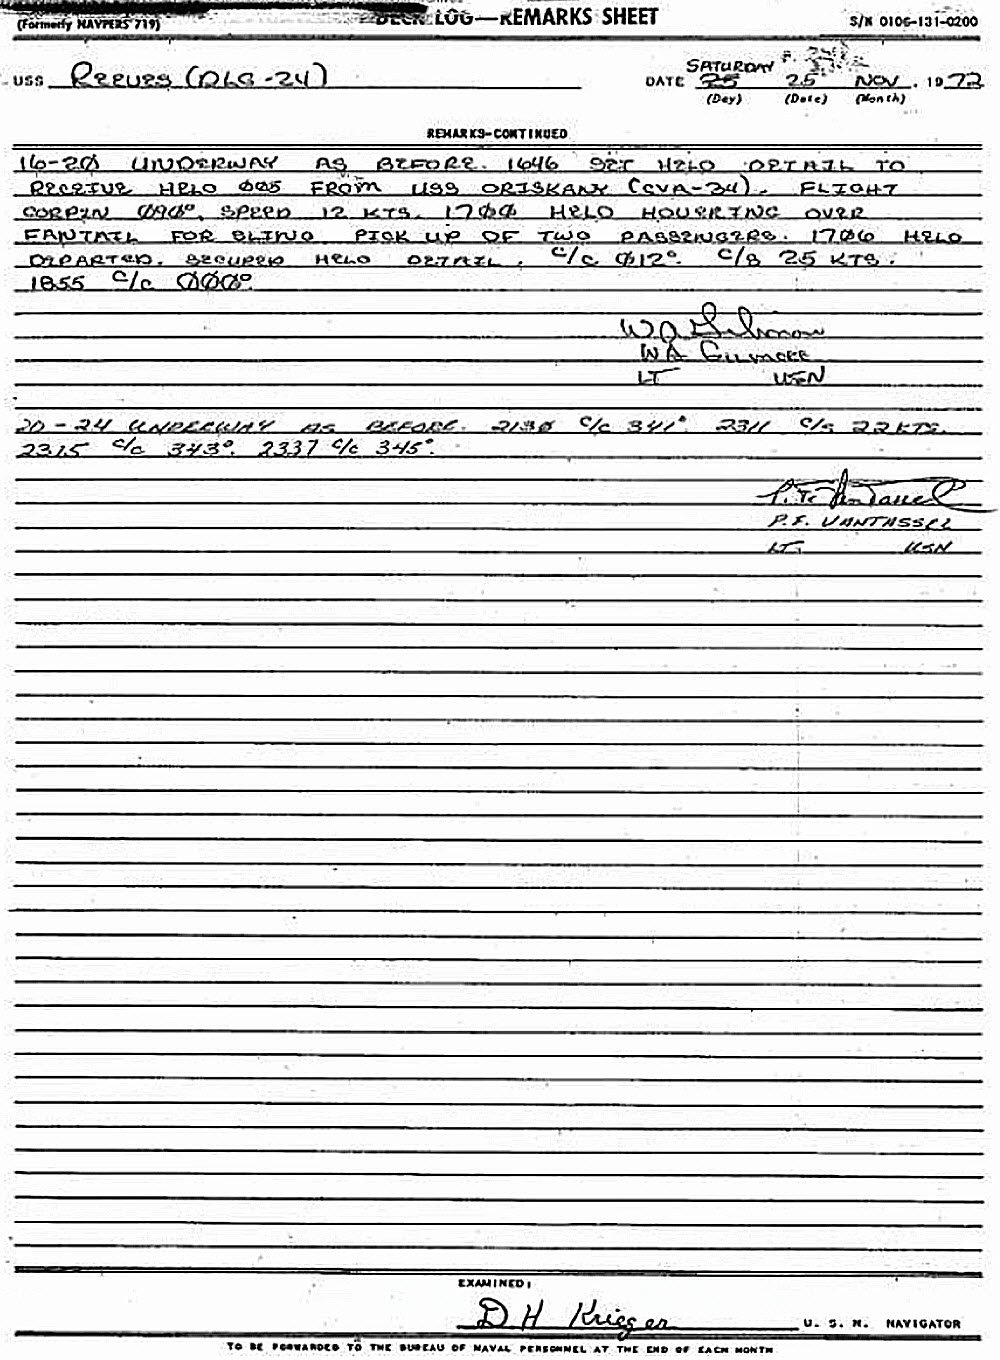 (Formerly NAVPERS 719)
DECK LOG—REMARKS SHEET
S/N 0106-131-0200
USS REEVES (DLG-24)
SATURDAY
DATE 25 25 NOV, 1972
(Day) (Date) (Month)
REMARKS—CONTINUED
16-2Ø UNDERWAY AS BEFORE. 1646 SET HELO DETAIL TO
RECEIVE HELO ØØ5 FROM USS ORISKANY (CVA-34). FLIGHT
CORPIN Ø9Ø°, SPEED 12 KTS. 17ØØ HELO HOVERING OVER
FANTAIL FOR SLING PICK UP OF TWO PASSENGERS. 17Ø6 HELO
DEPARTED. SECURED HELO DETAIL. C/C Ø12° C/S 25 KTS.
1855 C/C ØØØ°
W A Gilmore
WA GILMORE
LT USN
20-24 UNDERWAY AS BEFORE. 213Ø C/C 341°. 2311 C/S 22KTS.
2315 C/C 343°. 2337 C/C 345°.
P. F. VanTassel
P.F. VANTASSEL
LT. USN
EXAMINED:
D H Krieger
U. S. N. NAVIGATOR
TO BE FORWARDED TO THE BUREAU OF NAVAL PERSONNEL AT THE END OF EACH MONTH